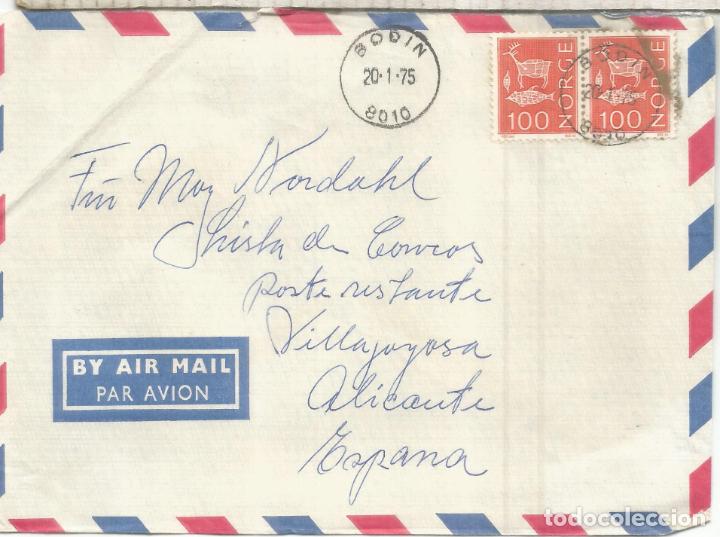 BODIN
20·1·75
8010
NORGE
100
NORGE
100
BODIN
8010
May Nordahl
de Correos
Poste restante
Villajoyosa
Alicante
Espana
BY AIR MAIL
PAR AVION
todocoleccion